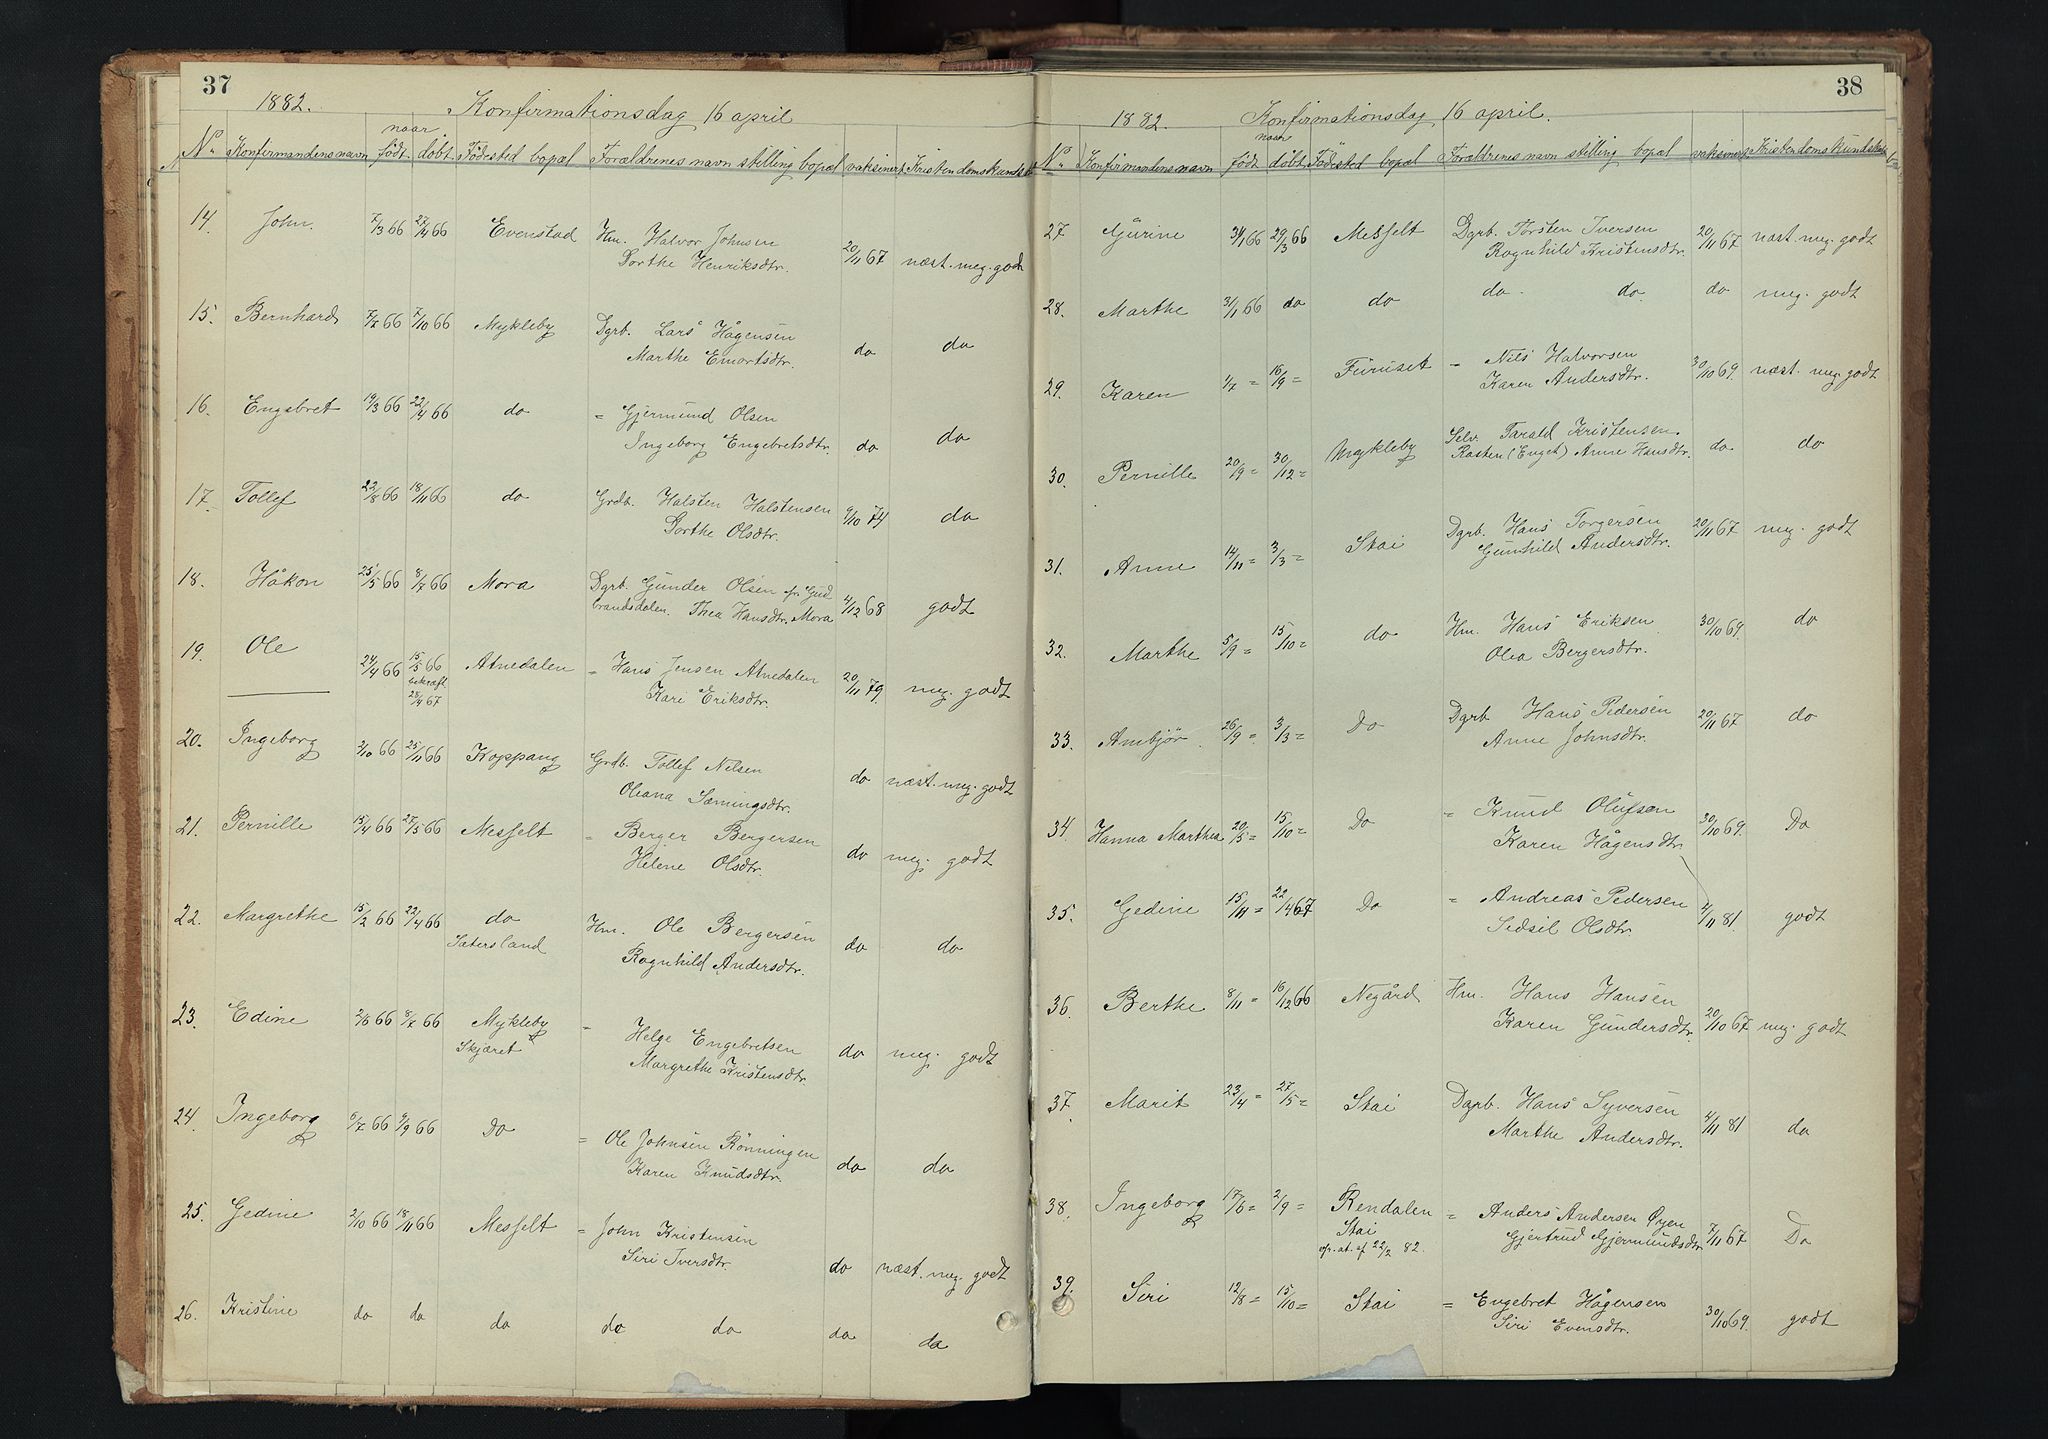 37
1882. Konfirmationsdag 16 april
naar
No Konfirmandens navn født døbt Fødested bopæl Forældrenes navn stilling bopæl vaksinert Kristendomskundsk
14. John. 7/3 66 27/4 66 Evenstad Hm. Halvor Johnsen
Dorthe Henriksdtr. 20/11 67 næst. meg. godt
15. Bernhard 7/7 66 7/10 66 Mykleby Dgrb. Lars Hågensen
Marthe Emortsdtr. do do
16. Engebret 19/3 66 22/4 66 do = Gjermund Olsen
Ingeborg Engebretsdtr. do do
17. Tollef 22/8 66 18/11 66 do Grdb. Halsten Halstensen
Dorthe Olsdtr. 9/10 74 do
18. Håkon 25/5 66 8/7 66 Mora Dgrb. Gunder Olsen fr. Gud
brandsdalen. Thea Hansdtr. Mora 4/12 68 godt
19. Ole 24/4 66 15/5 66 Atnedalen = Hans Jensen Atnedalen
bekræft. 28/4 67 Kari Eriksdtr. 20/11 79. meg. godt
20. Ingeborg 2/10 66 25/11 66 Koppang Grdb. Tollef Nilsen
Oleana Sæmingsdtr. do næst. meg. godt
21. Pernille 15/4 66 27/5 66 Messelt = Berger Bergersen
Helene Olsdtr. do meg. godt
22. Margrethe 15/2 66 22/4 66 do Hm. Ole Bergersen
Sætersland Ragnhild Andersdtr. do do
23. Edine 2/6 66 8/7 66 Mykleby = Helge Engebretsen
Skjæret Margrethe Kristensdtr. do meg. godt
24. Ingeborg 6/7 66 9/9 66 Do = Ole Johnsen Rönningen
Karen Knudsdtr. do do
25. Gedine 2/10 66 18/11 66 Messelt = John Kristensen
Siri Iversdtr. do næst. meg. godt
26. Kristine do do do do do do do
38
1882. Konfirmationsdag 16 april.
naar
No Konfirmandens navn født døbt Fødested bopæl Forældrenes navn stilling bopæl vaksinert Kristendomskundskab
27 Gurine 31/1 66 29/3 66 Messelt Dgrb. Torsten Iversen
Ragnhild Kristensdtr. 20/11 67 næst. meg. godt
28. Marthe 31/1 66 do do do do do meg. godt
29. Karen 1/7 = 16/9 = Furuset = Nils Halvorsen
Karen Andersdtr. 30/10 69. næst. meg. godt
30. Pernille 20/9 = 30/12 = Mykleby Selv. Tarald Kristensen.
Rasten (Enget) Anne Hansdtr. do do
31. Anne 14/11 = 3/3 = Stai Dgrb. Hans Torgersen
Gunhild Andersdtr. 20/11 67 meg. godt
32. Marthe 5/9 = 15/10 = do Hm. Hans Eriksen
Olea Bergersdtr. 30/10 69. do
33. Ambjør 26/9 = 3/3 = Do Dgrb Hans Pedersen
Anne Johnsdtr. 20/11 67 do
34. Hanna Marthea 20/5 = 15/10 = Do = Knud Olufsen
Karen Hågensdtr. 30/10 69. Do
35. Gedine 15/11 = 22/4 67 Do = Andreas Pedersen
Sidsil Olsdtr. 4/11 81 godt
36. Berthe 8/11 = 16/12 66 Negård Hm. Hans Hansen
Karen Gundersdtr. 20/10 67 meg. godt
37. Marit 23/4 = 27/5 = Stai Dgrb. Hans Syversen
Marthe Andersdtr. 4/11 81 do
38. Ingeborg 17/6 = 2/9 = Rendalen = Anders Andersen Øyen
Stai Gjertrud Gjermundsdtr 7/11 67 Do
efr. at. af 22/2 82.
39. Siri 12/8 = 15/10 = Stai = Engebret Hågensen
Siri Evensdtr. 30/10 69. godt